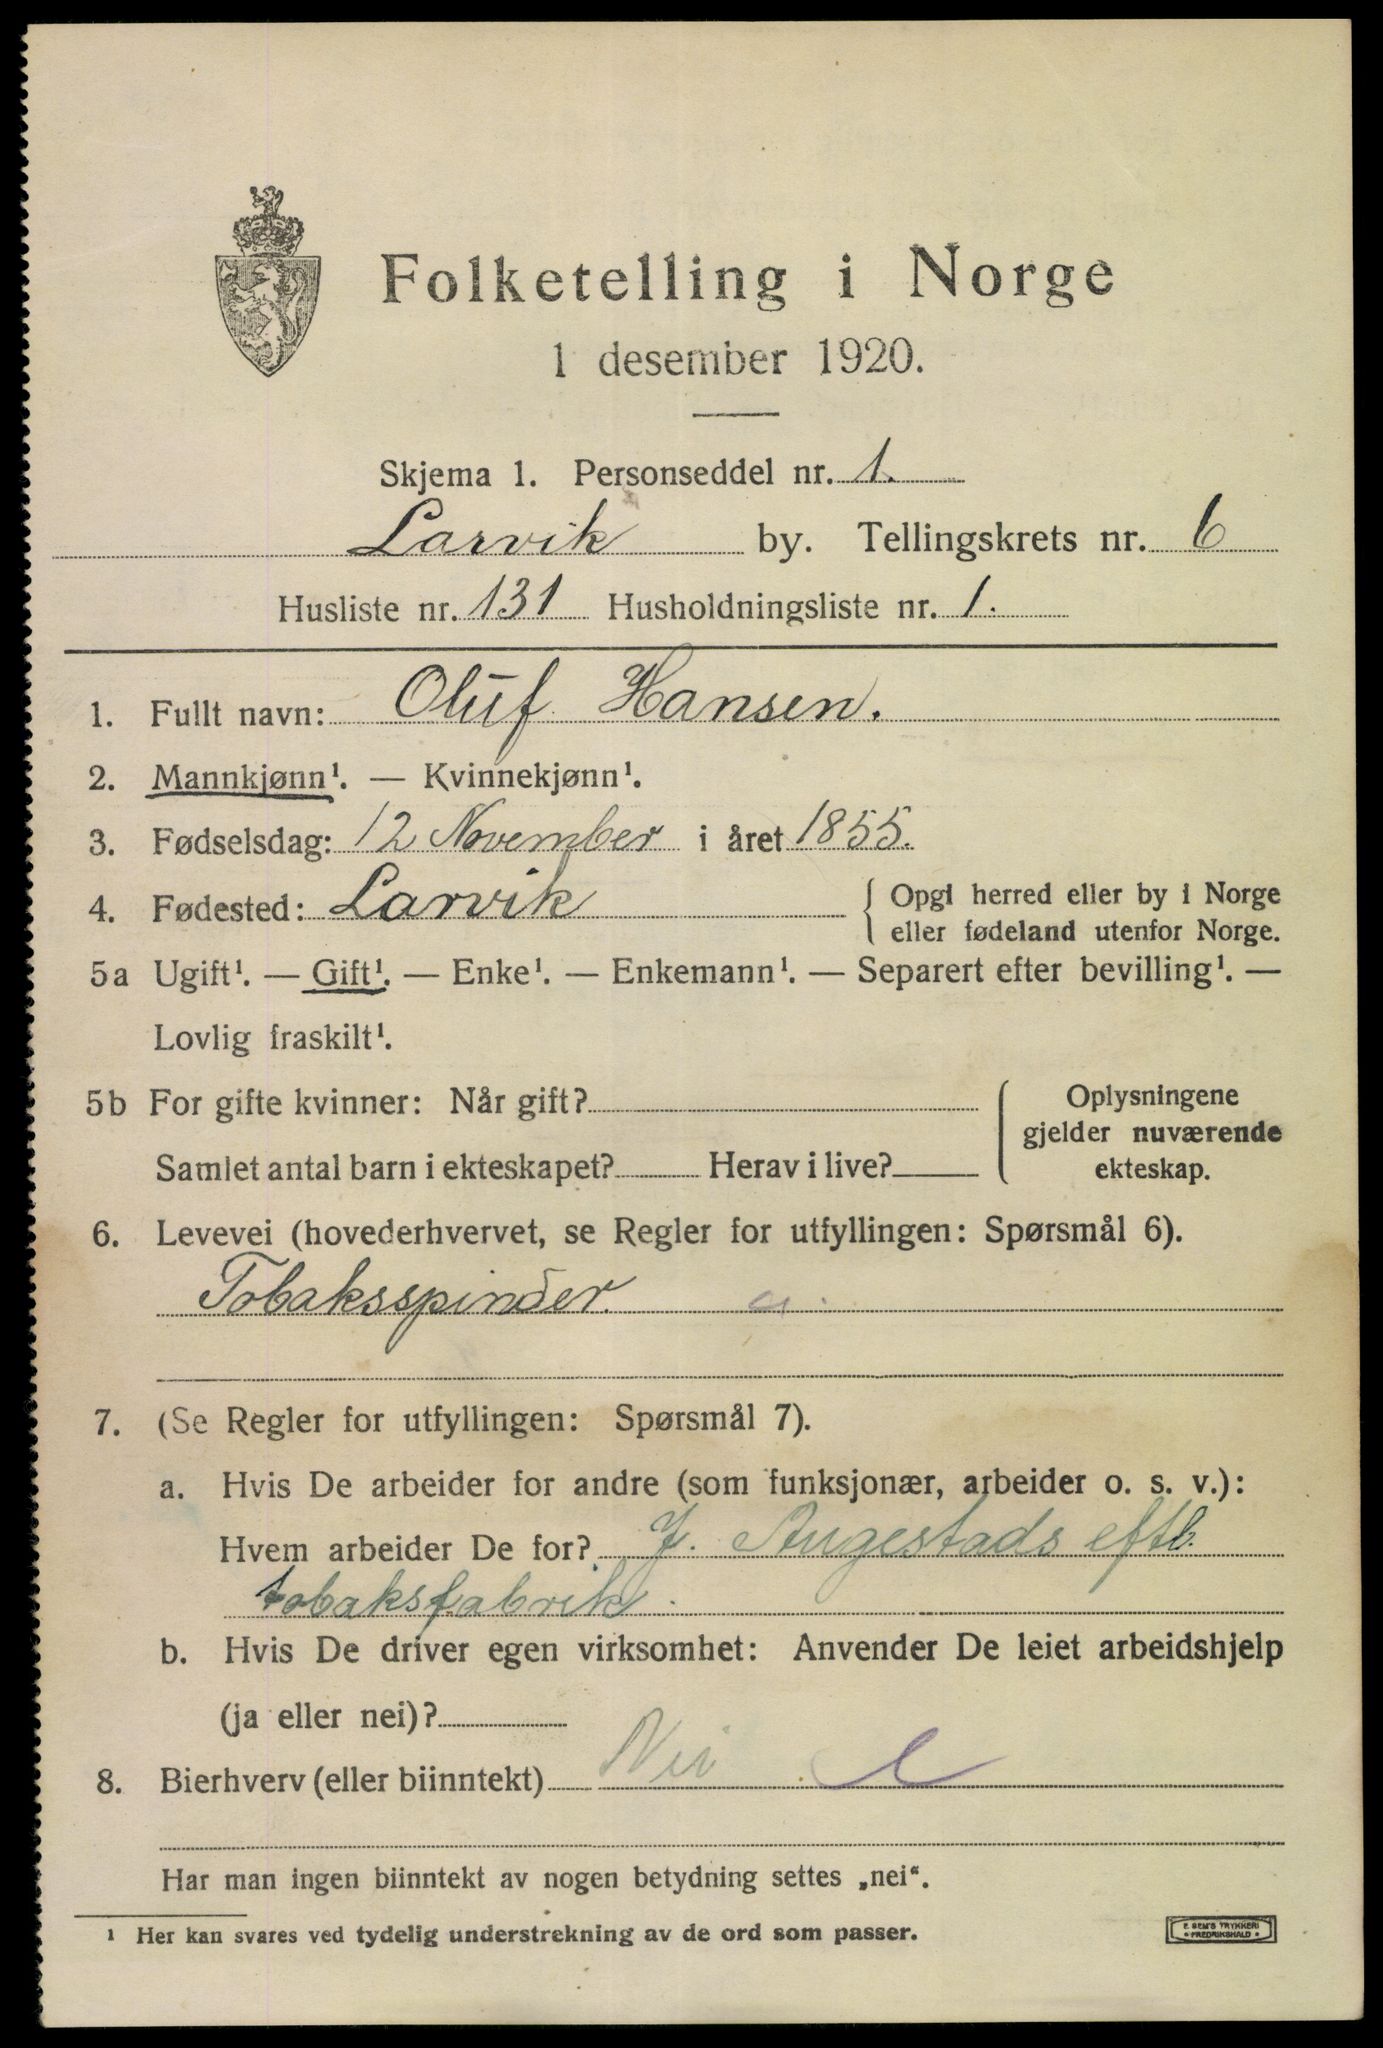 Folketelling i Norge
1 desember 1920.
Skjema 1. Personseddel nr. 1.
Larvik by. Tellingskrets nr. 6
Husliste nr. 131 Husholdningsliste nr. 1.
1. Fullt navn: Oluf Hansen.
2. Mannkjønn¹. — Kvinnekjønn¹.
3. Fødselsdag: 12 November i året 1855.
4. Fødested: Larvik { Opgi herred eller by i Norge
eller fødeland utenfor Norge.
5a Ugift¹. — Gift¹. — Enke¹. — Enkemann¹. — Separert efter bevilling¹. —
Lovlig fraskilt¹.
5b For gifte kvinner: Når gift? Oplysningene
gjelder nuværende
Samlet antal barn i ekteskapet? Herav i live? ekteskap.
6. Levevei (hovederhvervet, se Regler for utfyllingen: Spørsmål 6).
Tobaksspinder. a.
7. (Se Regler for utfyllingen: Spørsmål 7).
a. Hvis De arbeider for andre (som funksjonær, arbeider o. s. v.):
Hvem arbeider De for? J. Augestads eftl.
tobaksfabrik.
b. Hvis De driver egen virksomhet: Anvender De leiet arbeidshjelp
(ja eller nei)?
8. Bierhverv (eller biinntekt) Nei
Har man ingen biinntekt av nogen betydning settes „nei“.
¹ Her kan svares ved tydelig understrekning av de ord som passer.
E. SEM'S TRYKKERI
• FREDRIKSHALD •